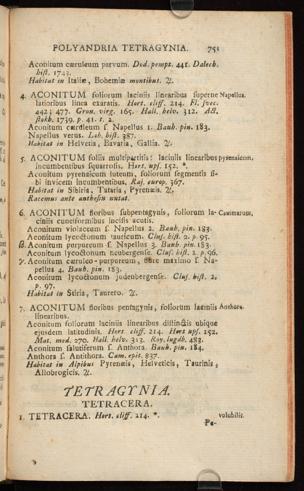 POLYANDRIA TETRAGYNIA. 751
Aconitum cæruleum parvum. Dod. pempt. 441. Dalech.
hist. 1742.
Habitat in Italiæ, Bohemiæ montibus. ♃.
4. ACONITUM foliorum laciniis linearibus superne Napellus.
latioribus linea exaratis. Hort. cliff. 214. Fl. svec.
442; 477. Gron. virg. 165. Hall. helv. 312. Act.
stokh. 1739. p. 41. t. 2.
Aconitum cæruleum s. Napellus 1. Bauh. pin. 183.
Napellus verus. Lob. hist. 387.
Habitat in Helvetia, Bavaria, Gallia. ♃.
5. ACONITUM foliis multipartitis: laciniis linearibus pyrenaicum.
incumbentibus squarrosis. Hort. ups. 152. *.
Aconitum pyrenaicum luteum, foliorum segmentis si-
bi invicem incumbentibus. Raj. europ. 367.
Habitat in Sibiria, Tataria, Pyrenæis. ♃.
Racemus ante anthesin nutat.
6. ACONITUM floribus subpentagynis, foliorum la- Cammarum.
ciniis cuneiformibus incisis acutis.
Aconitum violaceum s. Napellus 2. Bauh. pin. 183.
Aconitum lycoctonum tauricum. Clus. hist. 2. p. 95.
β. Aconitum purpureum s. Napellus 3. Bauh. pin. 183.
Aconitum lycoctonum neubergense. Clus. hist. 2. p. 96.
γ. Aconitum cæruleo-purpureum, flore maximo s. Na-
pellus 4. Bauh. pin. 183.
Aconitum lycoctonum judenbergense. Clus. hist. 2.
p. 97.
Habitat in Stiria, Taurero. ♃.
7. ACONITUM floribus pentagynis, foliorum laciniis Anthora.
linearibus.
Aconitum foliorum laciniis linearibus distinctis ubique
ejusdem latitudinis. Hort. cliff. 214. Hort. ups. 152.
Mat. med. 270. Hall. helv. 313. Roy. lugdb. 483.
Aconitum salutiferum s. Anthora. Bauh. pin. 184.
Anthora s. Antithora. Cam. epit. 837.
Habitat in Alpibus Pyrenæis, Helveticis, Taurinis,
Allobrogicis. ♃.
TETRAGYNIA.
TETRACERA.
1. TETRACERA. Hort. cliff. 214. *. volubilis.
Pe-